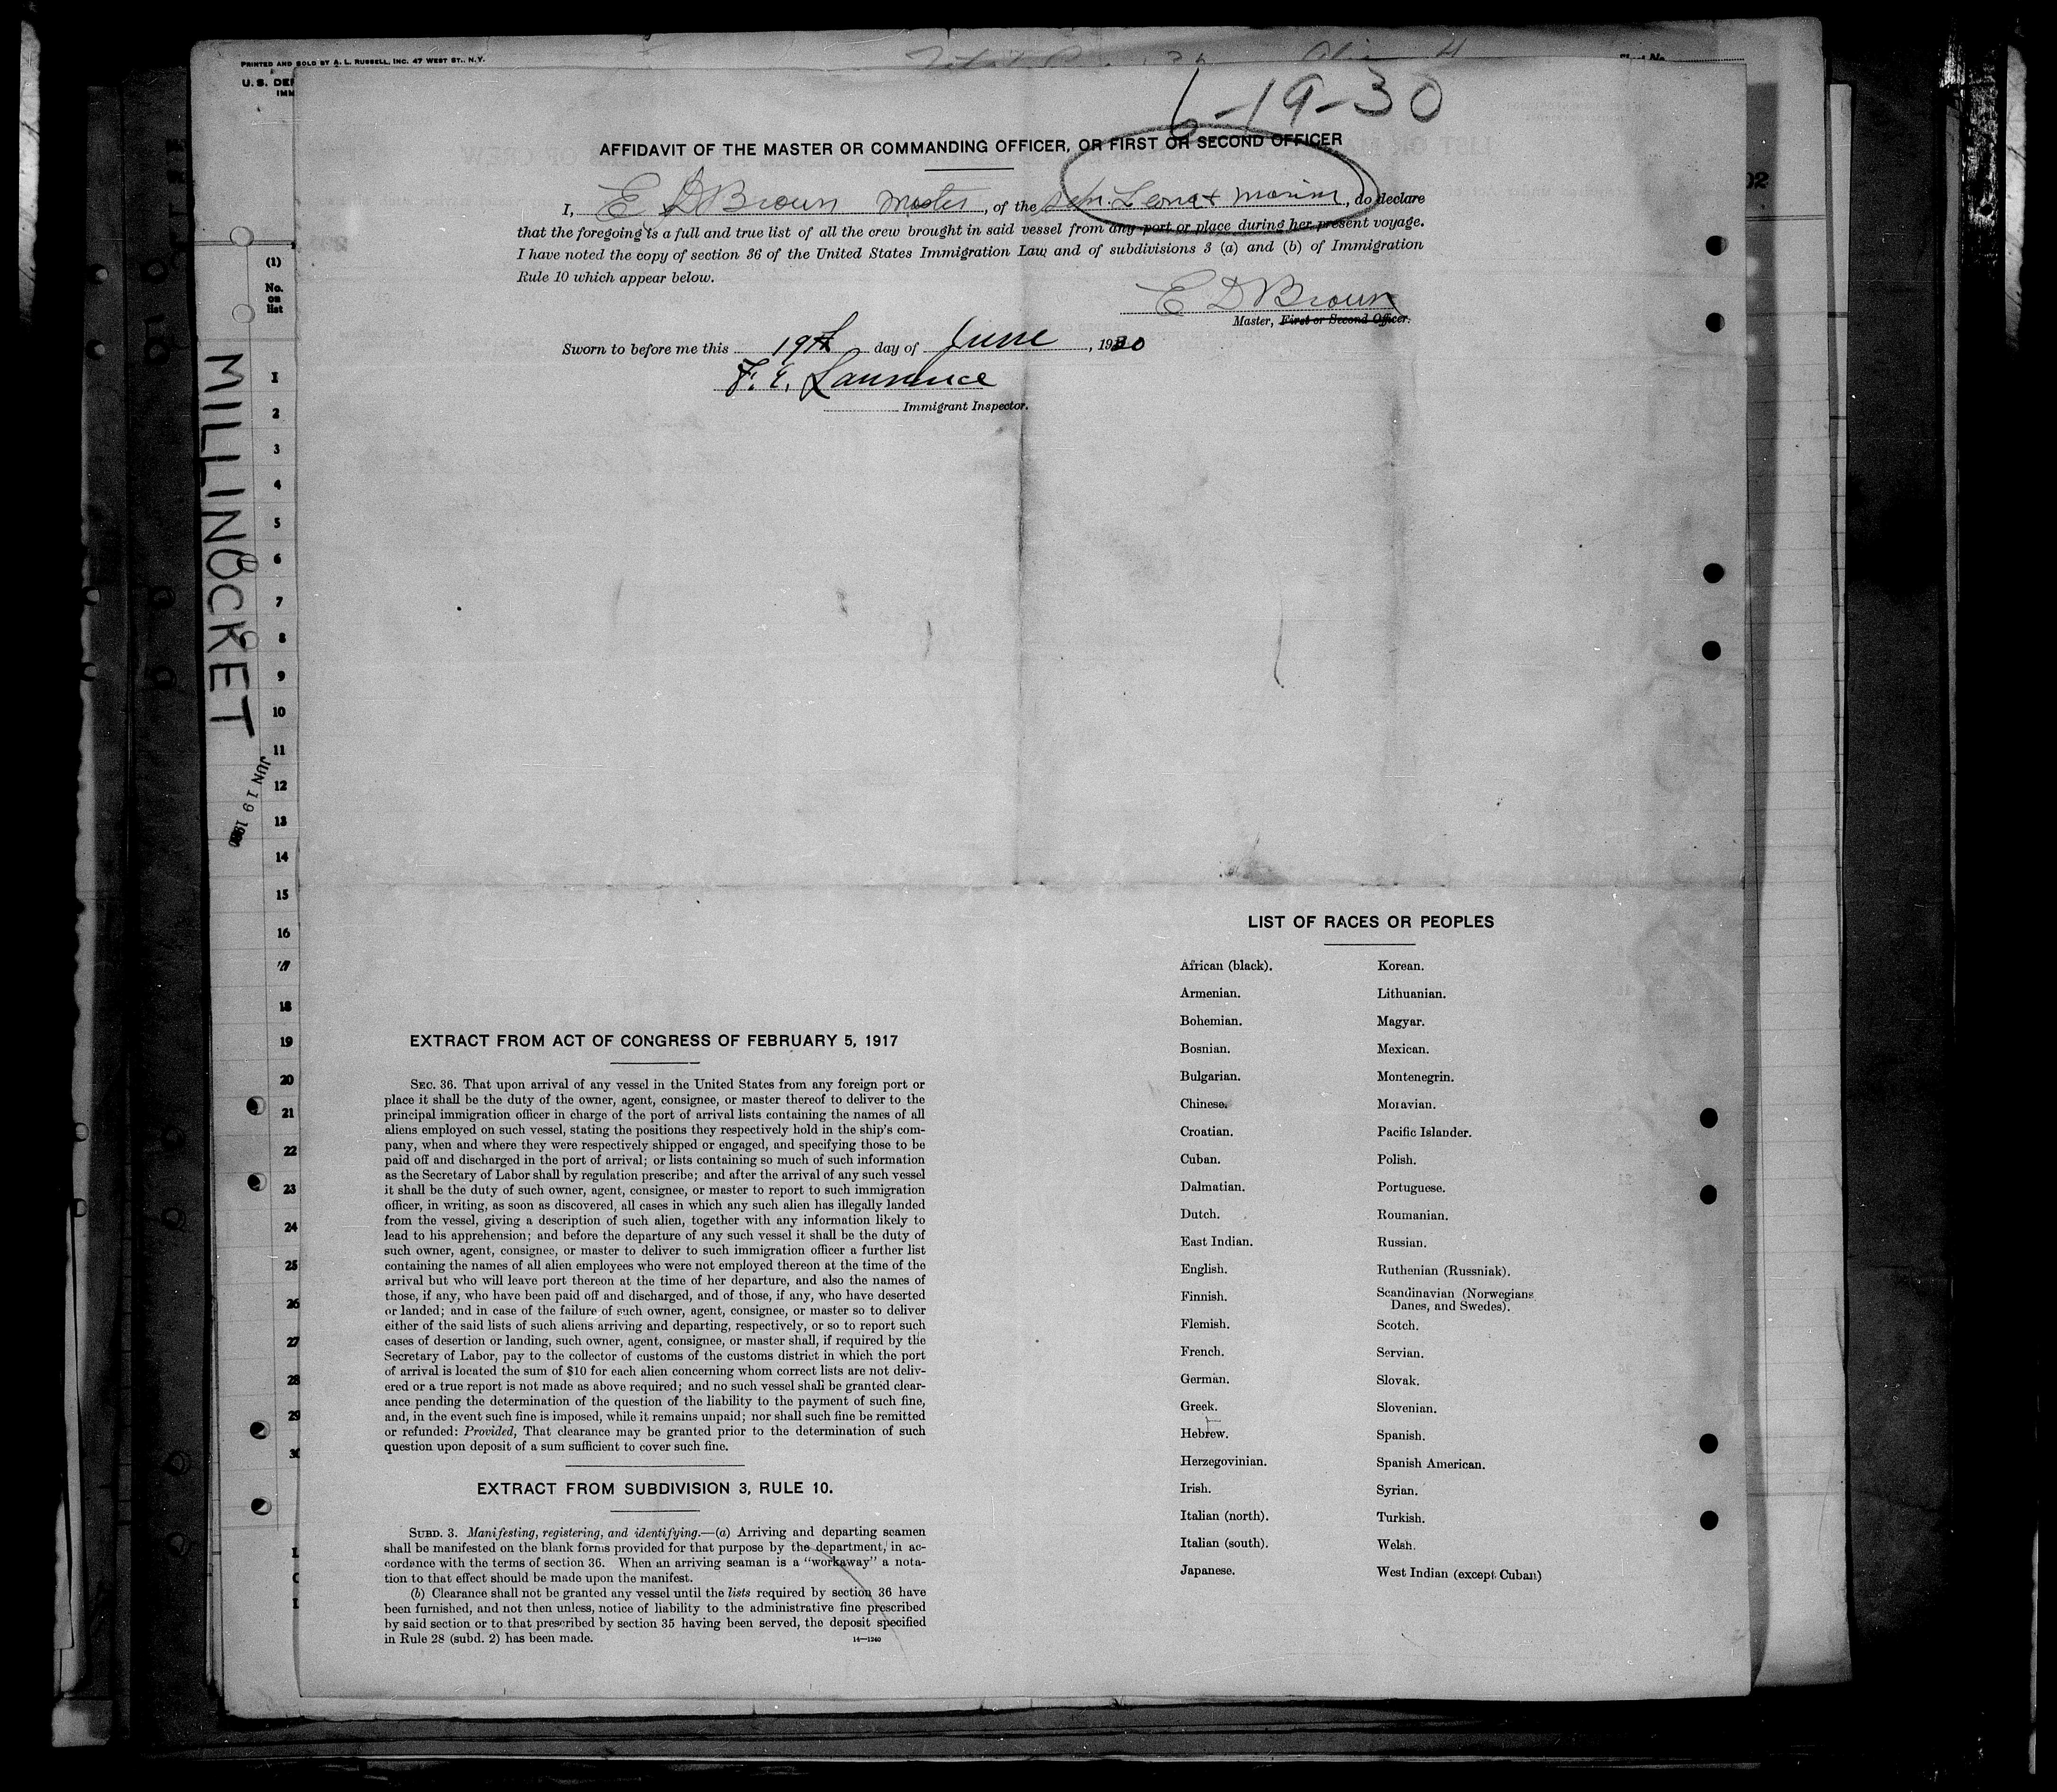 PRINTED AND SOLD BY A. L. RUSSELL, INC. 47 WEST ST., N.Y.
U. S. DEP
IMM
6-19-30
AFFIDAVIT OF THE MASTER OR COMMANDING OFFICER, OR FIRST OR SECOND OFFICER
I, E D Brown Master, of the Sch. Leona & Marion, do declare
that the foregoing is a full and true list of all the crew brought in said vessel from any port or place during her present voyage.
I have noted the copy of section 36 of the United States Immigration Law and of subdivisions 3 (a) and (b) of Immigration
Rule 10 which appear below.
E D Brown
Master, First or Second Officer.
Sworn to before me this 19th day of June, 1930
F. E. Lawrence
Immigrant Inspector.
02
(1)
No.
on
list
MILLINOCKET
JUN 19 19
1
2
3
4
5
6
7
8
9
10
11
12
13
14
15
16
17
18
19
20
21
22
23
24
25
26
27
28
29
30
EXTRACT FROM ACT OF CONGRESS OF FEBRUARY 5, 1917
SEC. 36. That upon arrival of any vessel in the United States from any foreign port or
place it shall be the duty of the owner, agent, consignee, or master thereof to deliver to the
principal immigration officer in charge of the port of arrival lists containing the names of all
aliens employed on such vessel, stating the positions they respectively hold in the ship's com-
pany, when and where they were respectively shipped or engaged, and specifying those to be
paid off and discharged in the port of arrival; or lists containing so much of such information
as the Secretary of Labor shall by regulation prescribe; and after the arrival of any such vessel
it shall be the duty of such owner, agent, consignee, or master to report to such immigration
officer, in writing, as soon as discovered, all cases in which any such alien has illegally landed
from the vessel, giving a description of such alien, together with any information likely to
lead to his apprehension; and before the departure of any such vessel it shall be the duty of
such owner, agent, consignee, or master to deliver to such immigration officer a further list
containing the names of all alien employees who were not employed thereon at the time of the
arrival but who will leave port thereon at the time of her departure, and also the names of
those, if any, who have been paid off and discharged, and of those, if any, who have deserted
or landed; and in case of the failure of such owner, agent, consignee, or master so to deliver
either of the said lists of such aliens arriving and departing, respectively, or so to report such
cases of desertion or landing, such owner, agent, consignee, or master shall, if required by the
Secretary of Labor, pay to the collector of customs of the customs district in which the port
of arrival is located the sum of $10 for each alien concerning whom correct lists are not deliv-
ered or a true report is not made as above required; and no such vessel shall be granted clear-
ance pending the determination of the question of the liability to the payment of such fine,
and, in the event such fine is imposed, while it remains unpaid; nor shall such fine be remitted
or refunded: Provided, That clearance may be granted prior to the determination of such
question upon deposit of a sum sufficient to cover such fine.
EXTRACT FROM SUBDIVISION 3, RULE 10.
SUBD. 3. Manifesting, registering, and identifying.—(a) Arriving and departing seamen
shall be manifested on the blank forms provided for that purpose by the department, in ac-
cordance with the terms of section 36. When an arriving seaman is a "workaway" a nota-
tion to that effect should be made upon the manifest.
(b) Clearance shall not be granted any vessel until the lists required by section 36 have
been furnished, and not then unless, notice of liability to the administrative fine prescribed
by said section or to that prescribed by section 35 having been served, the deposit specified
in Rule 28 (subd. 2) has been made.
14—1240
LIST OF RACES OR PEOPLES
African (black).
Armenian.
Bohemian.
Bosnian.
Bulgarian.
Chinese.
Croatian.
Cuban.
Dalmatian.
Dutch.
East Indian.
English.
Finnish.
Flemish.
French.
German.
Greek.
Hebrew.
Herzegovinian.
Irish.
Italian (north).
Italian (south).
Japanese.
Korean.
Lithuanian.
Magyar.
Mexican.
Montenegrin.
Moravian.
Pacific Islander.
Polish.
Portuguese.
Roumanian.
Russian.
Ruthenian (Russniak).
Scandinavian (Norwegians
Danes, and Swedes).
Scotch.
Servian.
Slovak.
Slovenian.
Spanish.
Spanish American.
Syrian.
Turkish.
Welsh.
West Indian (except Cuban)